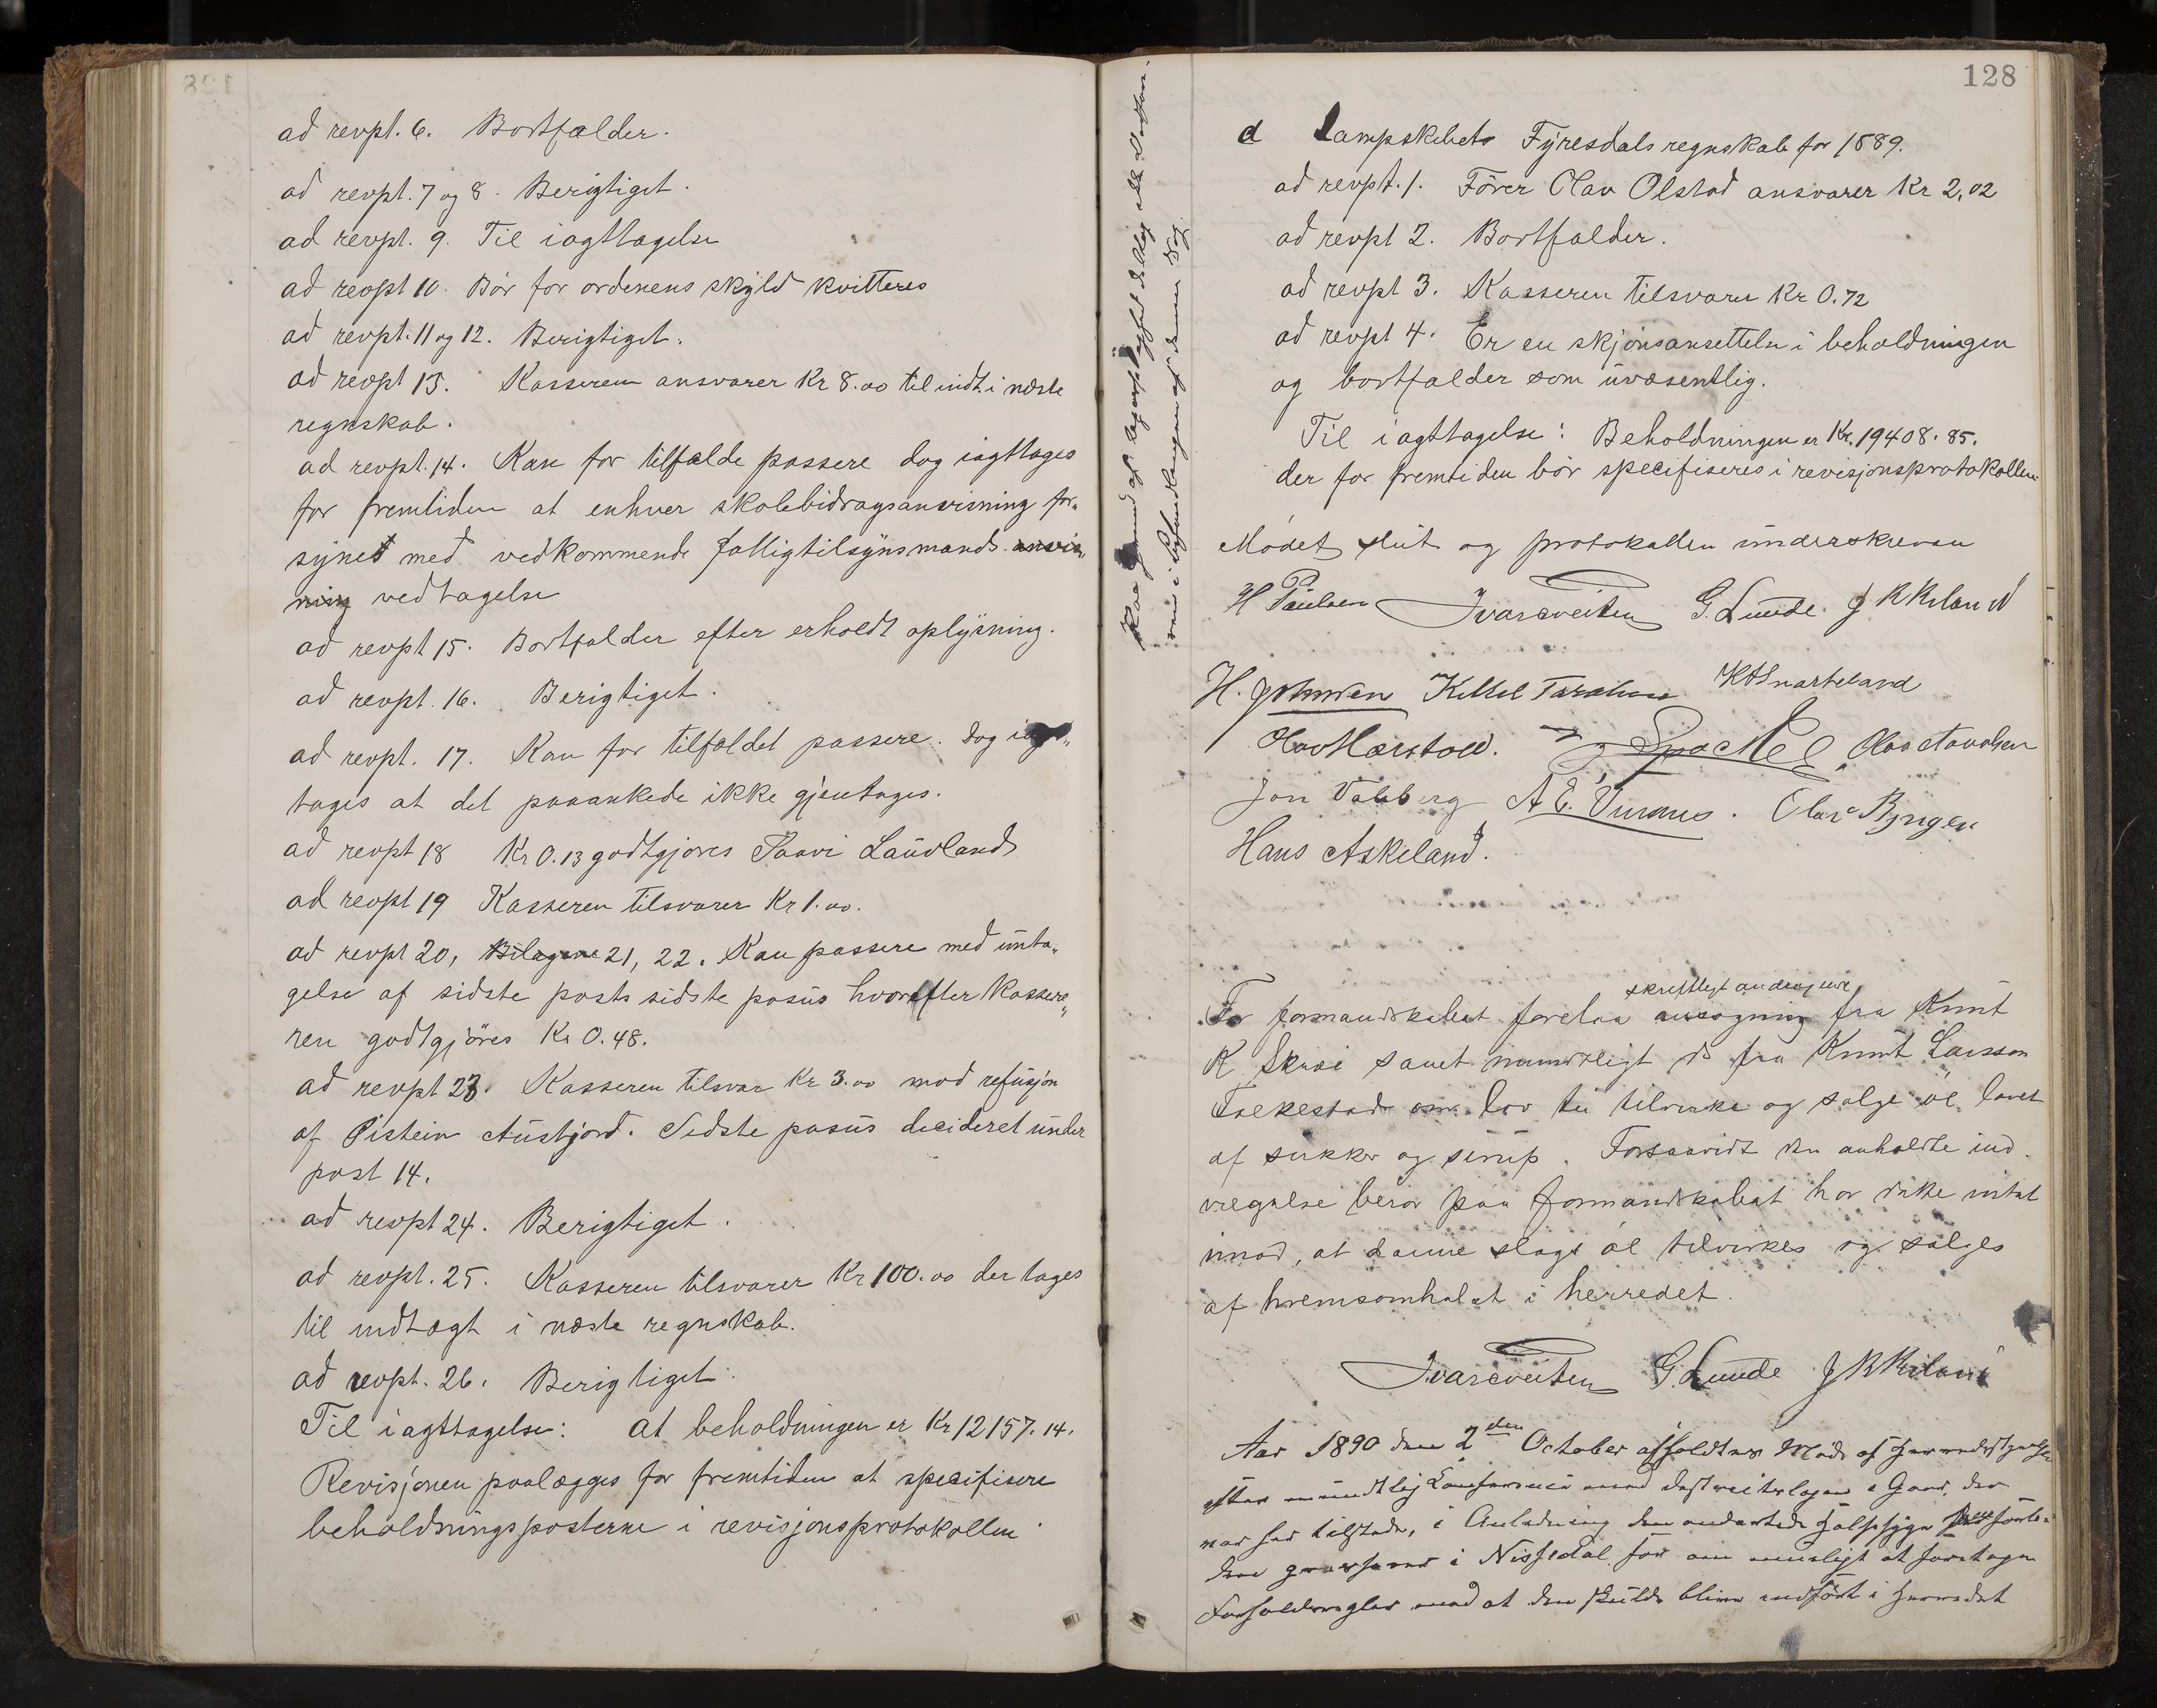 ad revpt. 6. Bortfalder.
ad revpt. 7 og 8. Berigtiget.
ad revpt. 9. Til iagttagelse
ad revpt 10. Bör for ordenens skyld kvitteres
ad revpt. 11 og 12. Berigtiget.
ad revpt 13. Kasseren ansvarer Kr 8.00 til indt. i næste
regnskab.
ad revpt. 14. Kan for tilfælde passere dog iagttages
for fremtiden at enhver skolebidragsanvisning for„
synet med vedkommende fattigtilsynsmands anvis„
ning vedtagelse
ad revpt 15. Bortfalder efter erholdt oplysning.
ad revpt. 16. Berigtiget.
ad revpt. 17. Kan for tilfældet passere. dog iagt„
tages at det paaankede ikke gjentages.
ad revpt 18 Kr 0.13 godtgjöres Taavi Lauvland
ad revpt 19 Kasseren tilsvarer Kr 1.00.
ad revpt 20, Bilagene 21, 22. Kan passere med unta„
gelse af sidste posts sidste pasus hvorefter Kassere„
ren godtgjöres Kr 0.48.
ad revpt 23. Kasseren tilsvar Kr 3.00 mod refusjon
af Øistein Austjord. Sidste pasus decideret under
post 14.
ad revpt 24. Berigtiget.
ad revpt. 25. Kasseren tilsvarer Kr 100.00 der tages
til indtægt i næste regnskab.
ad revpt. 26. Berigtiget.
Til iagttagelse: at beholdningen er Kr 12157.14.
Revisjonen paalægges for fremtiden at specifisere
beholdningsposterne i revisjonsprotokollen
128
d Dampskibets Fyresdals regnskab for 1889.
ad revpt. 1. Förer Olav Olstad ansvarer Kr 2,02
ad revpt 2. Bortfalder.
ad revpt 3. Kasseren tilsvarer Kr 0.72
ad revpt 4. Er en skjönsansettelse i beholdningen
og bortfalder som uvæsentlig.
Til iagttagelse: Beholdningen er Kr. 19408.85.
der for fremtiden bör specifiseres i revisjonsprotokollen
Mödet slut og protokollen underskreven
H Paulsen Ivarsveiten G. Lunde. J K Kiland
H. Johnsen Kittel Taraldsen K H Snarteland
Olav Hærstad. Olav Aanolsen
Jon Valeberg A E. Turmus. Olav Byngen
Hans Askeland.
skriftligt andragende
For formandskabet forelaa ansögning fra Knut
K. Skræi samt mundtligt do fra Knut Larsson
Folkestad om lov til tilvirke og sælge öl lavet
af sukker og sirup. Forsaavidt den anholdte ind
vegelse beror paa formandskabet har dette intet
imod, at denne slags öl tilvirkes og sælges
af hvemsomhelst i herredet.
Ivarsveiten G. Lunde J K Kiland
Aar 1890 den 2den October afholdtes Möde af Herredsstyrelsen
efter mundtlig Conference med
var her tilstede, i Anledning den ondartede Halssyge
der grasserer i Nissedal for om muligt at foretage
Forholdsregler med at den skulde blive indfört i Herredet